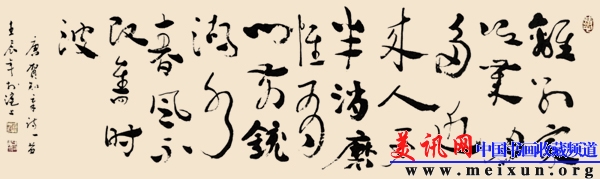 離别家
鄉歲月
多近
来人事
半消磨
惟有
門前鏡
湖水
春風不
改舊時
波
唐賀知章詩一首
壬辰年於滬上
美讯网 中国书画收藏频道
www.meixun.org